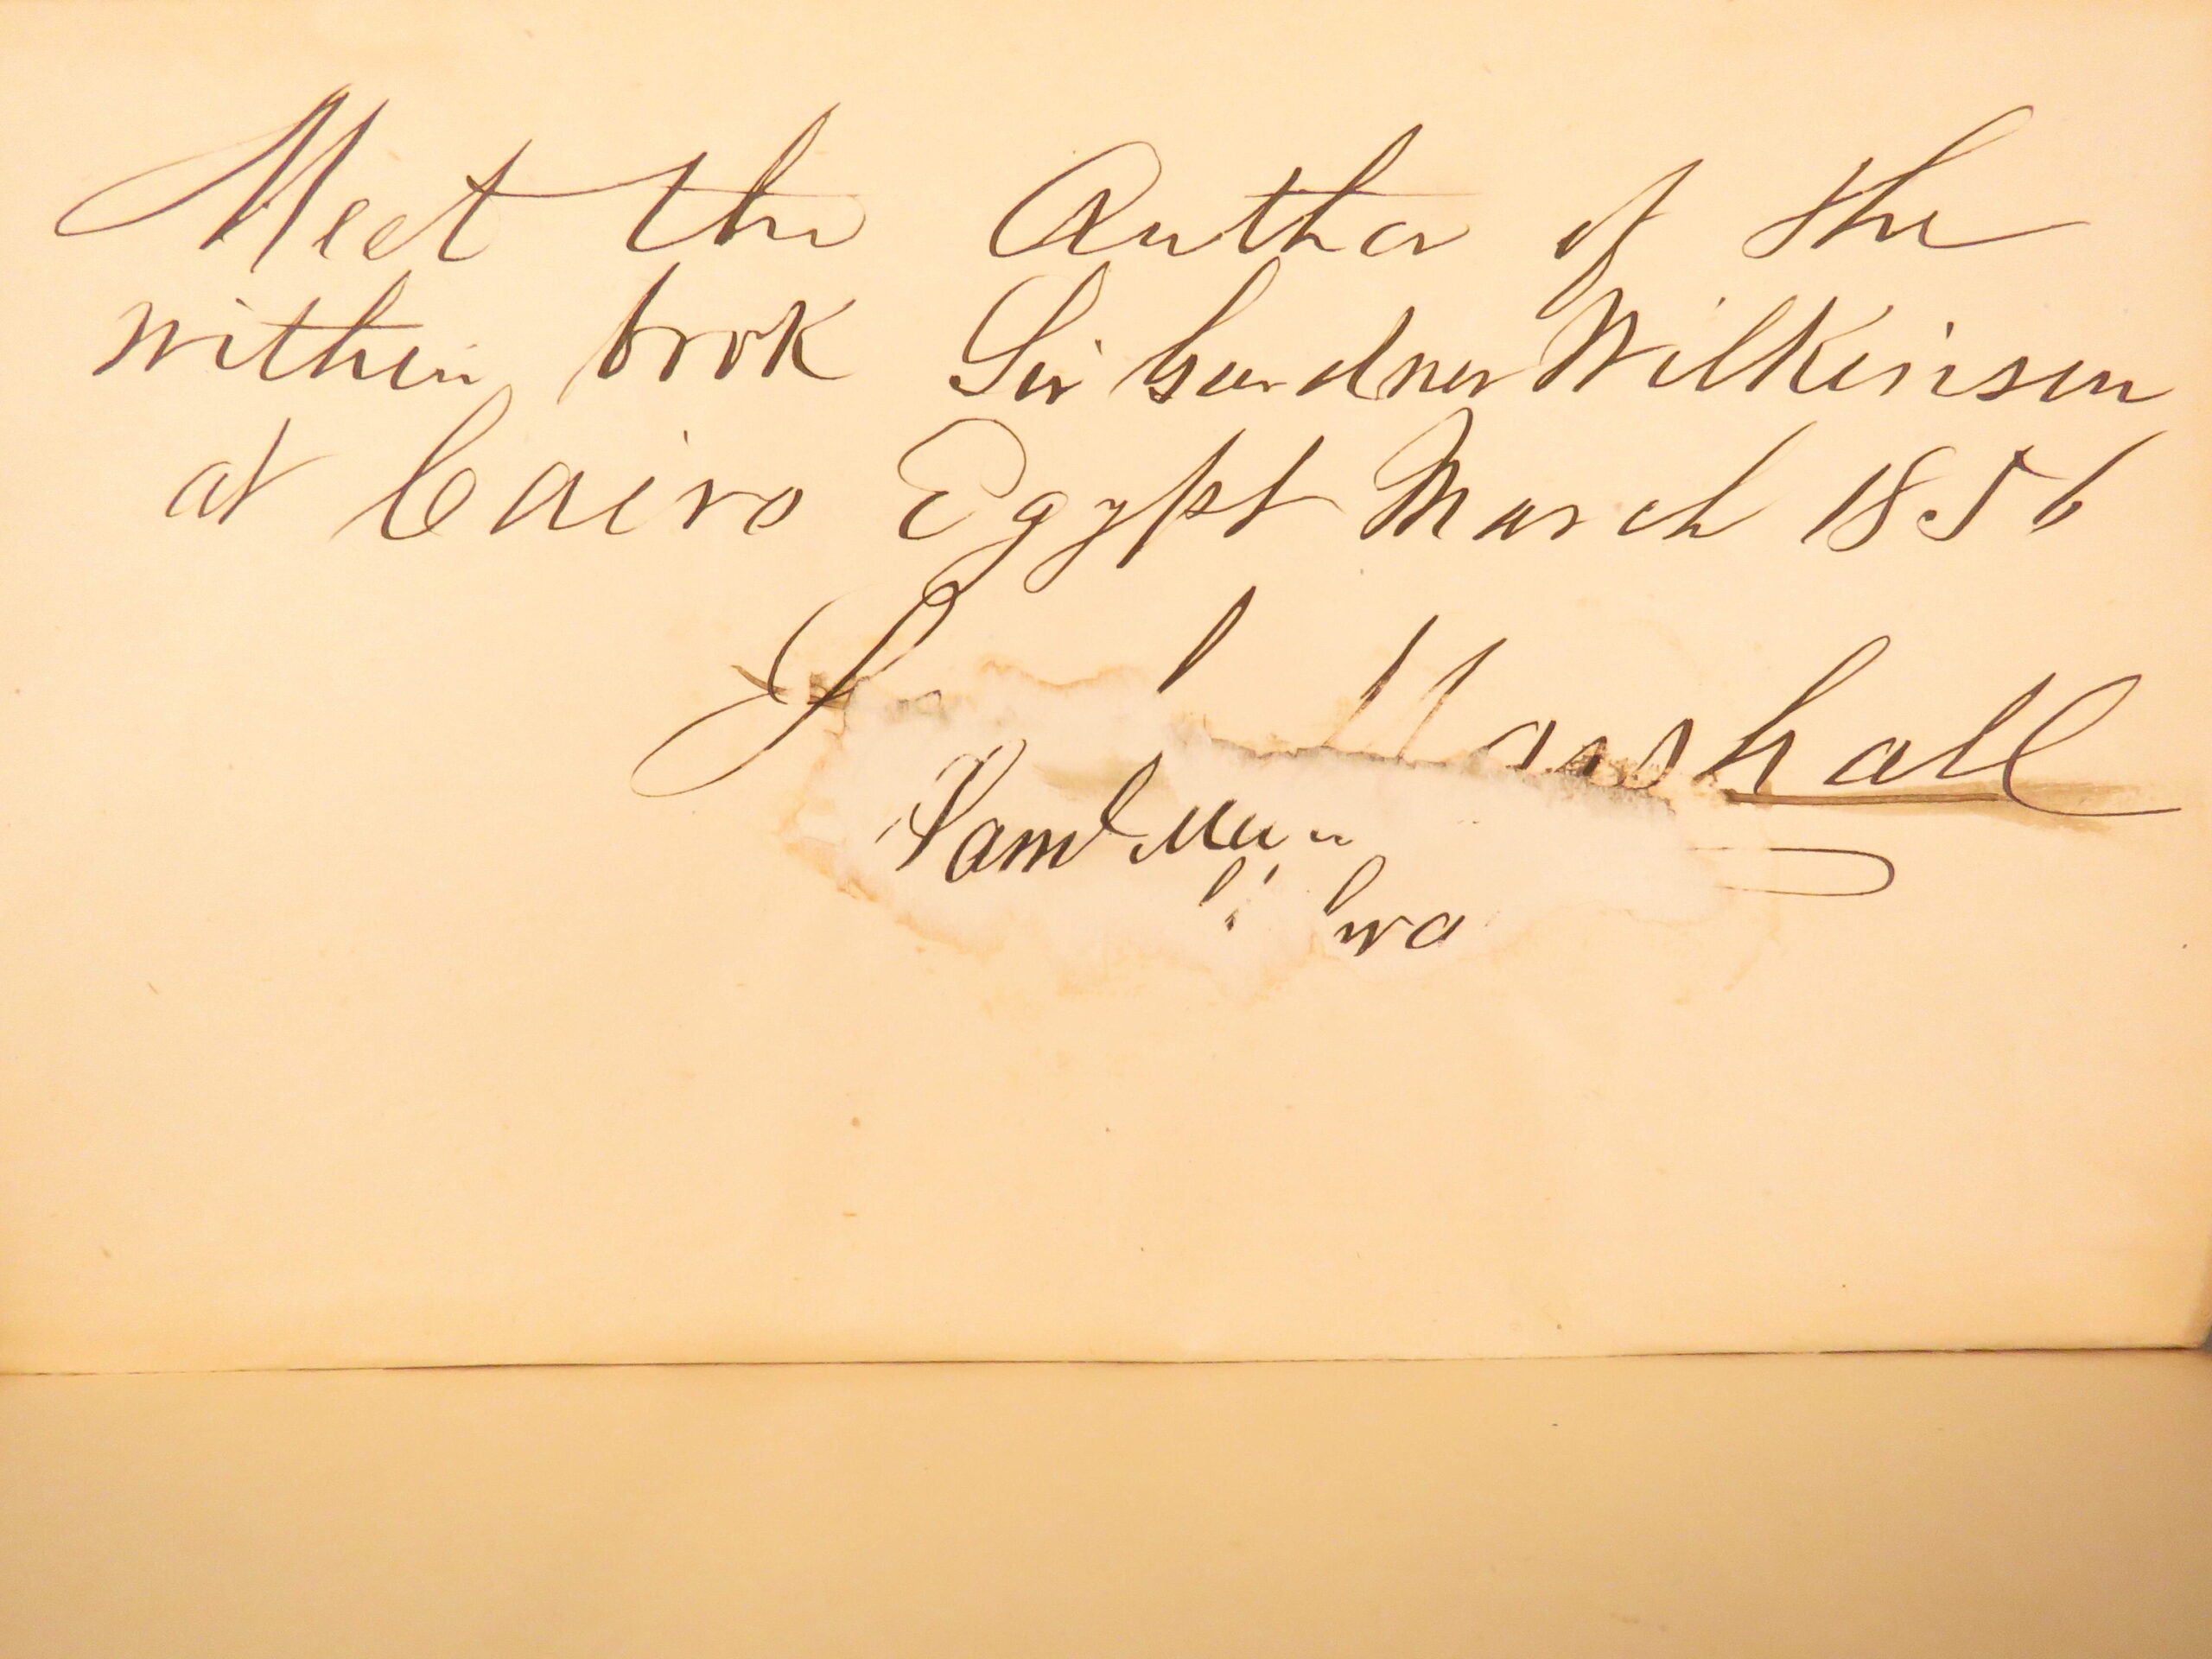 Meet the Author of the
within book Sir Gardner Wilkinson
at Cairo Egypt March 1856
Marshall
Saml